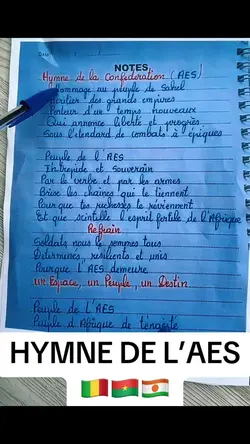 NOTES
Hymne de la Confédération (AES)
Hommage au peuple du Sahel
Héritier des grands empires
Porteur d'un temps nouveaux
Qui annonce liberté et progrès
Sous l'étendard de combats à épiques
Peuple de l'AES
Intrépide et Souverain
Par le verbe et par les armes
Brise les chaînes qui te tiennent
Pour que tes richesses te reviennent
Et que scintille l'esprit fertile de l'Afrique
Refrain
Soldats nous le sommes tous
Determinés, resilients et unis
Pourque L'AES demeure
un Espace, un Peuple, un Destin.
Peuple de L'AES
Peuple d'Afrique de
HYMNE DE L'AES